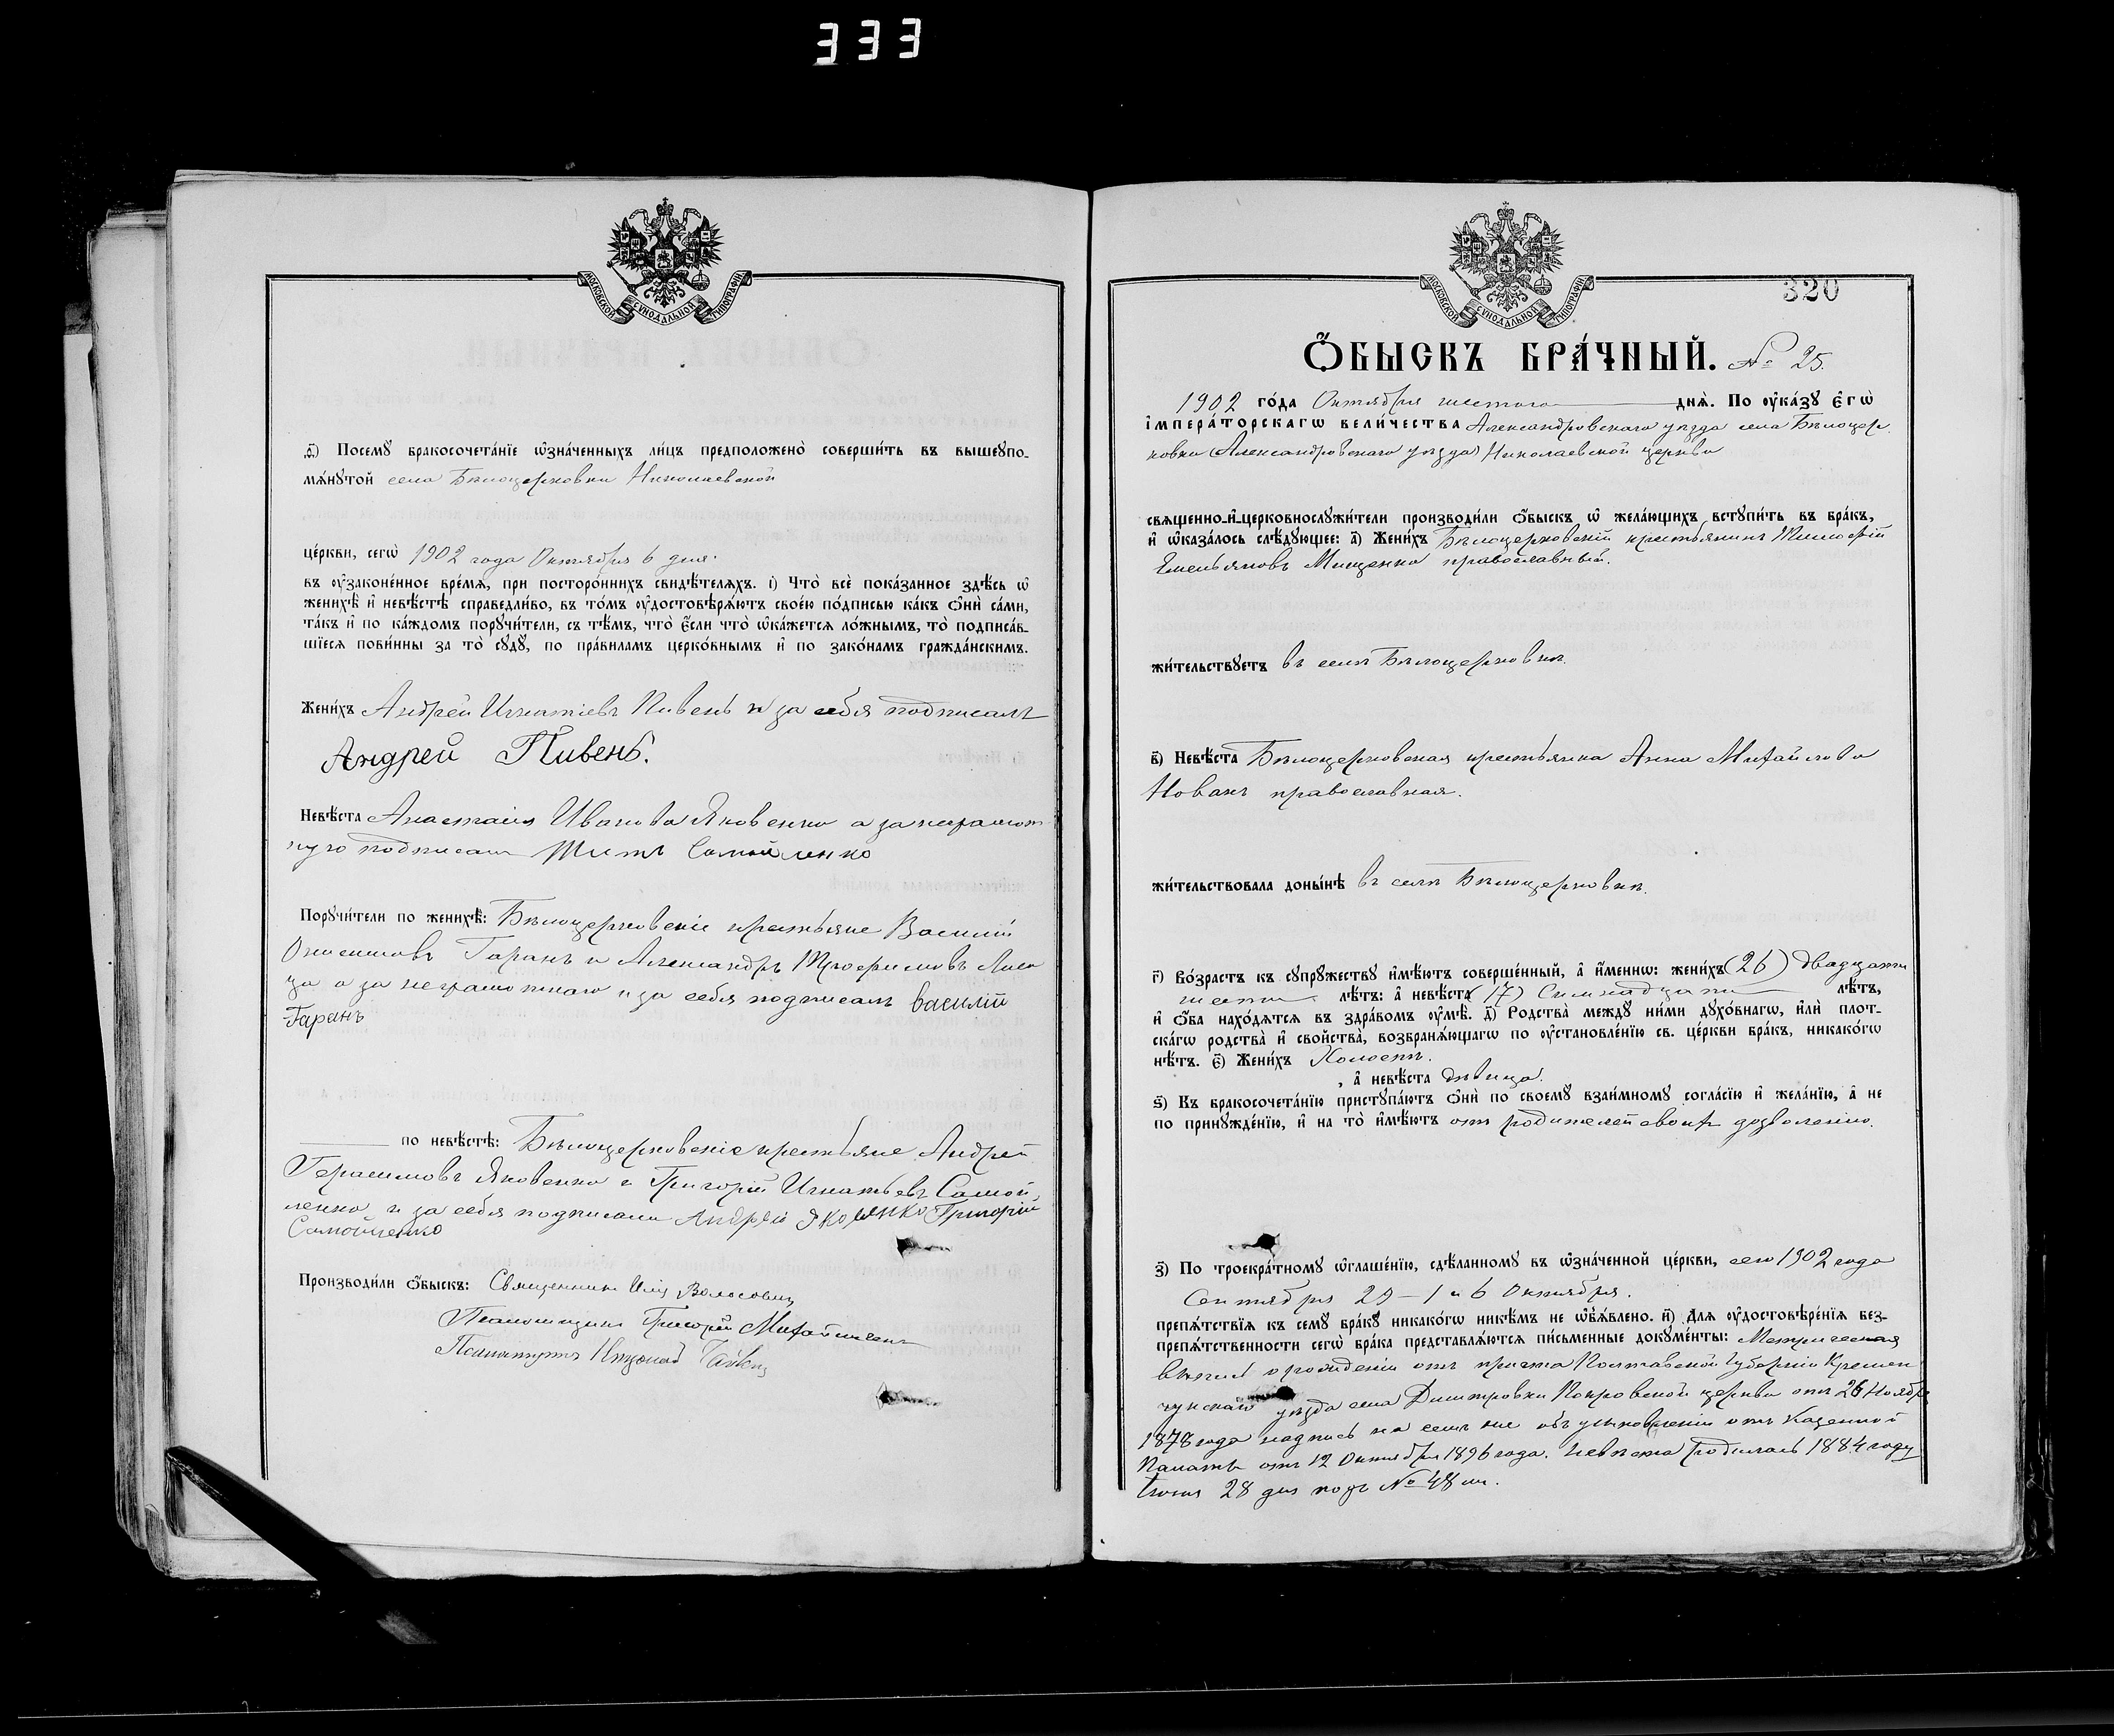 333
МОСКОВСКОЙ СѴНОДАЛЬНОЙ ТИПОГРАФІИ
ѳ҃) Посемꙋ бракосочета́нїе ѡ҆зна́ченныхъ ли́цъ предположено̀ соверши́ть въ вышеꙋпо-
мѧ́нꙋтой села Бѣлоцерковки Николаевской
це́ркви, сегѡ̀ 1902 года Октября 6 дня.
въ ᲂу҆зако́ненное вре́мѧ, при посторо́ннихъ свидѣ́телѧхъ. і҃) Что̀ всѐ пока́занное здѣ́сь ѡ҆
женихѣ̀ и҆ невѣ́стѣ справедли́во, въ то́мъ ᲂу҆достовѣрѧ́ютъ свое́ю по́дписью ка́къ ѻ҆нѝ са́ми,
та́къ и҆ по ка́ждомъ порꙋчи́тели, съ тѣ́мъ, что̀ є҆́сли что̀ ѡ҆ка́жетсѧ ло́жнымъ, то̀ подписа́в-
шїесѧ пови́нны за то̀ сꙋдꙋ̀, по пра́виламъ церко́внымъ и҆ по зако́намъ гражда́нскимъ.
Жени́хъ Андрей Игнатіевъ Пивень и за себя подписалъ
Андрей Пивень.
Невѣ́ста Анастасія Иванова Яковенко а за неграмот
ную подписалъ Титъ Самойленко
Порꙋчи́тели по женихѣ̀: Бѣлоцерковскіе крестьяне Василій
Онисимовъ Гаранъ и Александръ Трофимовъ Лиси
ца а за неграмотнаго и за себя подписалъ Василій
Гаранъ
по невѣ́стѣ: Бѣлоцерковскіе крестьяне Андрей
Герасимовъ Яковенко и Григорій Игнатьевъ Самой,
ленко и за себя подписали Андрей Яковенко Григорій
Самойленко
Производи́ли ѻ҆́быскъ: Священникъ Илія Волосовичъ
Псаломщикъ Григорій Михайличенко
320
МОСКОВСКОЙ СѴНОДАЛЬНОЙ ТИПОГРАФІИ
Ѻ҆́БЫСКЪ БРА́ЧНЫЙ. № 25.
1902 го́да Октября шестого днѧ̀. По ᲂу҆ка́зꙋ є҆гѡ̀
і҆мпера́торскагѡ вели́чества Александровскаго уѣзда села Бѣлоцер,
ковки (Александровскаго уѣзда) Николаевской церкви
свѧщенно-и҆-церковнослꙋжи́тели производи́ли ѻ҆́быскъ ѡ҆ жела́ющихъ встꙋпи́ть въ бра́къ,
и҆ ѡ҆каза́лось слѣ́дꙋющее: а҃) Жени́хъ Бѣлоцерковскій крестьянинъ Тимофій
Емельяновъ Мищенко православный.
жи́тельствꙋетъ въ селѣ Бѣлоцерковкѣ.
в҃) Невѣ́ста Бѣлоцерковская крестьянка Анна Михайлова
Новакъ православная.
жи́тельствовала донынѣ въ селѣ Бѣлоцерковкѣ.
г҃) Во́зрастъ къ сꙋпрꙋ́жествꙋ и҆мѣ́ютъ соверше́нный, а҆ и҆́меннѡ: жени́хъ (26) двадцати
шести лѣ́тъ: а҆ невѣ́ста (17) Семнадцати лѣ́тъ,
и҆ ѻ҆́ба нахо́дѧтсѧ въ здра́вомъ ᲂу҆мѣ̀. д҃) Родства̀ междꙋ ни́ми дꙋхо́внагѡ, и҆лѝ плот-
ска́гѡ родства̀ и҆ свойства̀, возбранѧ́ющагѡ по ᲂу҆становле́нїю св. це́ркви бра́къ, никако́гѡ
нѣ́тъ. є҃) Жени́хъ Холостъ.
, а҆ невѣ́ста дѣвица.
ѕ҃) Къ бракосочета́нїю пристꙋпа́ютъ ѻ҆нѝ по своемꙋ̀ взаи́мномꙋ согла́сїю и҆ жела́нїю, а҆ не
по принꙋжде́нїю, и҆ на то̀ и҆мѣ́ютъ отъ родителей своихъ дозволеніе.
з҃) По троекра́тномꙋ ѡ҆глаше́нїю, сдѣ́ланномꙋ въ ѡ҆зна́ченной це́ркви, сего 1902 года
Сентября 29 – 1 и 6 Октября.
препѧ́тствїѧ къ семꙋ̀ бра́кꙋ никако́гѡ никѣ́мъ не ѡ҆б̾ѧ́влено. и҃) Длѧ ᲂу҆достовѣре́нїѧ без-
препѧ́тственности сегѡ̀ бра́ка представлѧ́ютсѧ пи́сьменные докꙋме́нты: Метрическая
выпись о рожденіи отъ причта Полтавской губерніи Кремен
чугскаго уѣзда села Дмитровки Покровской церкви отъ 26 Ноября
1878 года надпись на семъ же объ усыновленіи отъ Казенной
Палаты отъ 12 Октября 1896 года. Невѣста родилась 1884 году
28 дня подъ № 48 м.